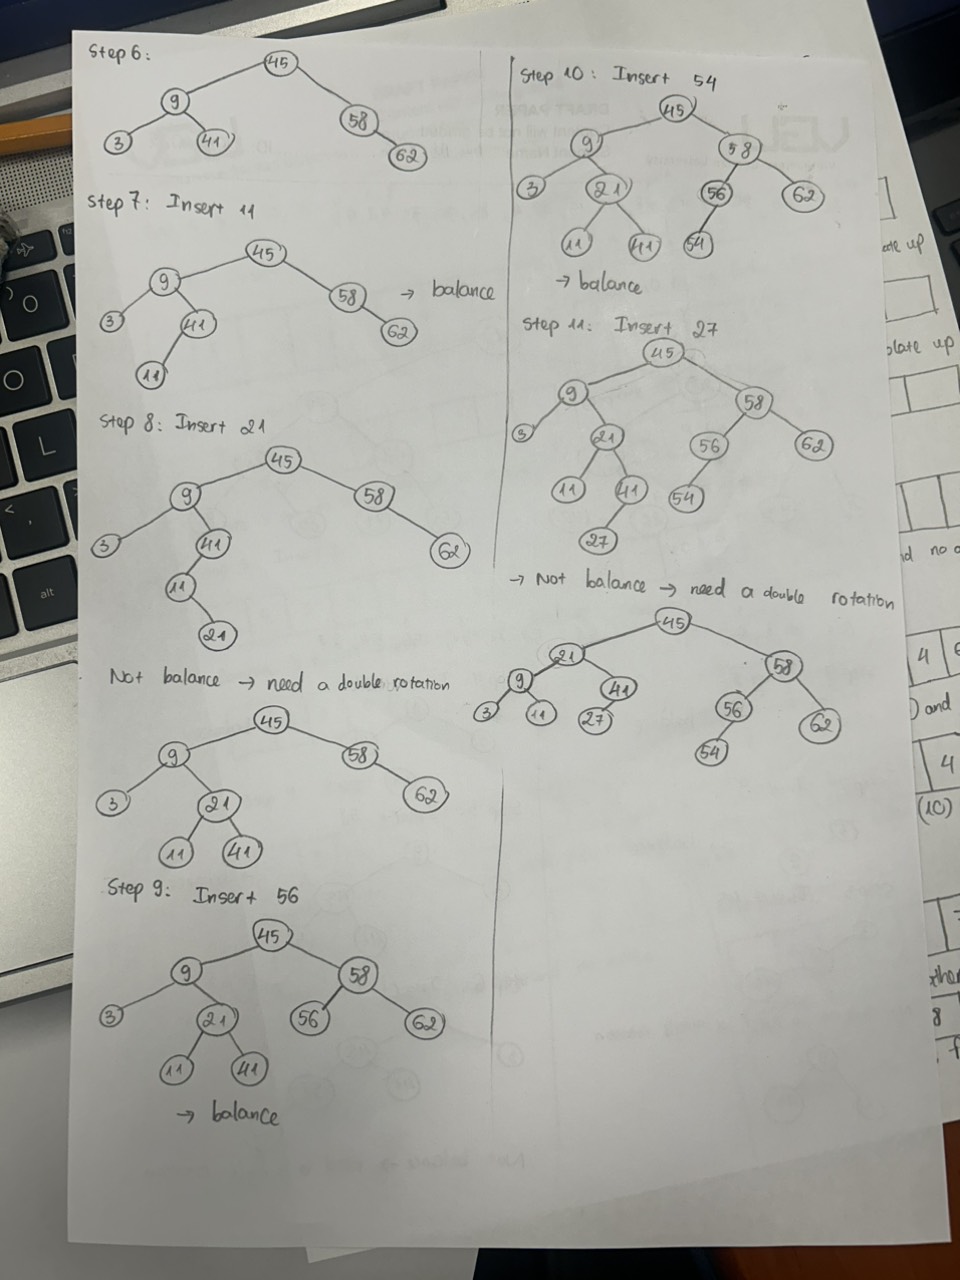 Step 6:
45
9
58
3
41
62
Step 7: Insert 11
45
9
58
→ balance
3
41
62
11
Step 8: Insert 21
45
9
58
3
41
62
11
21
Not balance → need a double rotation
45
9
58
3
21
62
11
41
Step 9: Insert 56
45
9
58
3
21
56
62
11
41
→ balance
Step 10: Insert 54
45
9
58
3
21
56
62
11
41
54
→ balance
Step 11: Insert 27
45
9
58
3
21
56
62
11
41
54
27
→ Not balance → need a double rotation
45
21
58
9
41
56
62
3
11
27
54
up
up
no
4
) and
4
(1C)
8
L
alt
O
O